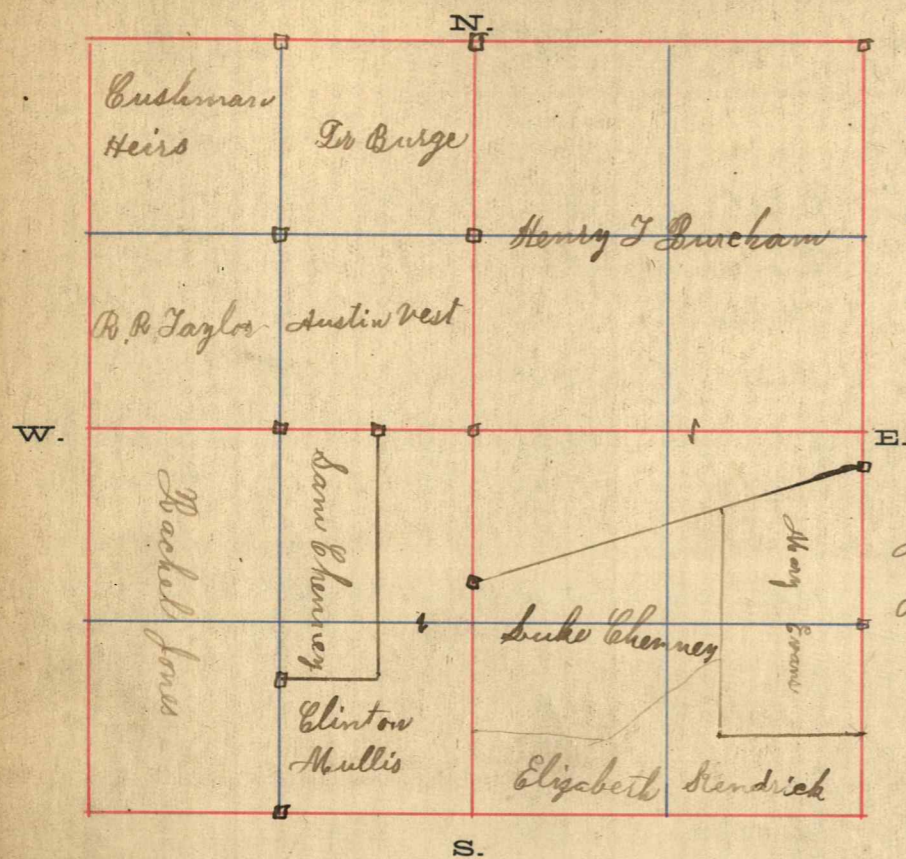 N.
Cushman
Heirs
Dr Burge
Henry T Burcham
R. R Taylor
Austin Vest
W.
E.
Rachel Jones
Sam Chenney
Mary Evans
Luke Chenney
Clinton
Mullis
Elizabeth Kendrick
S.